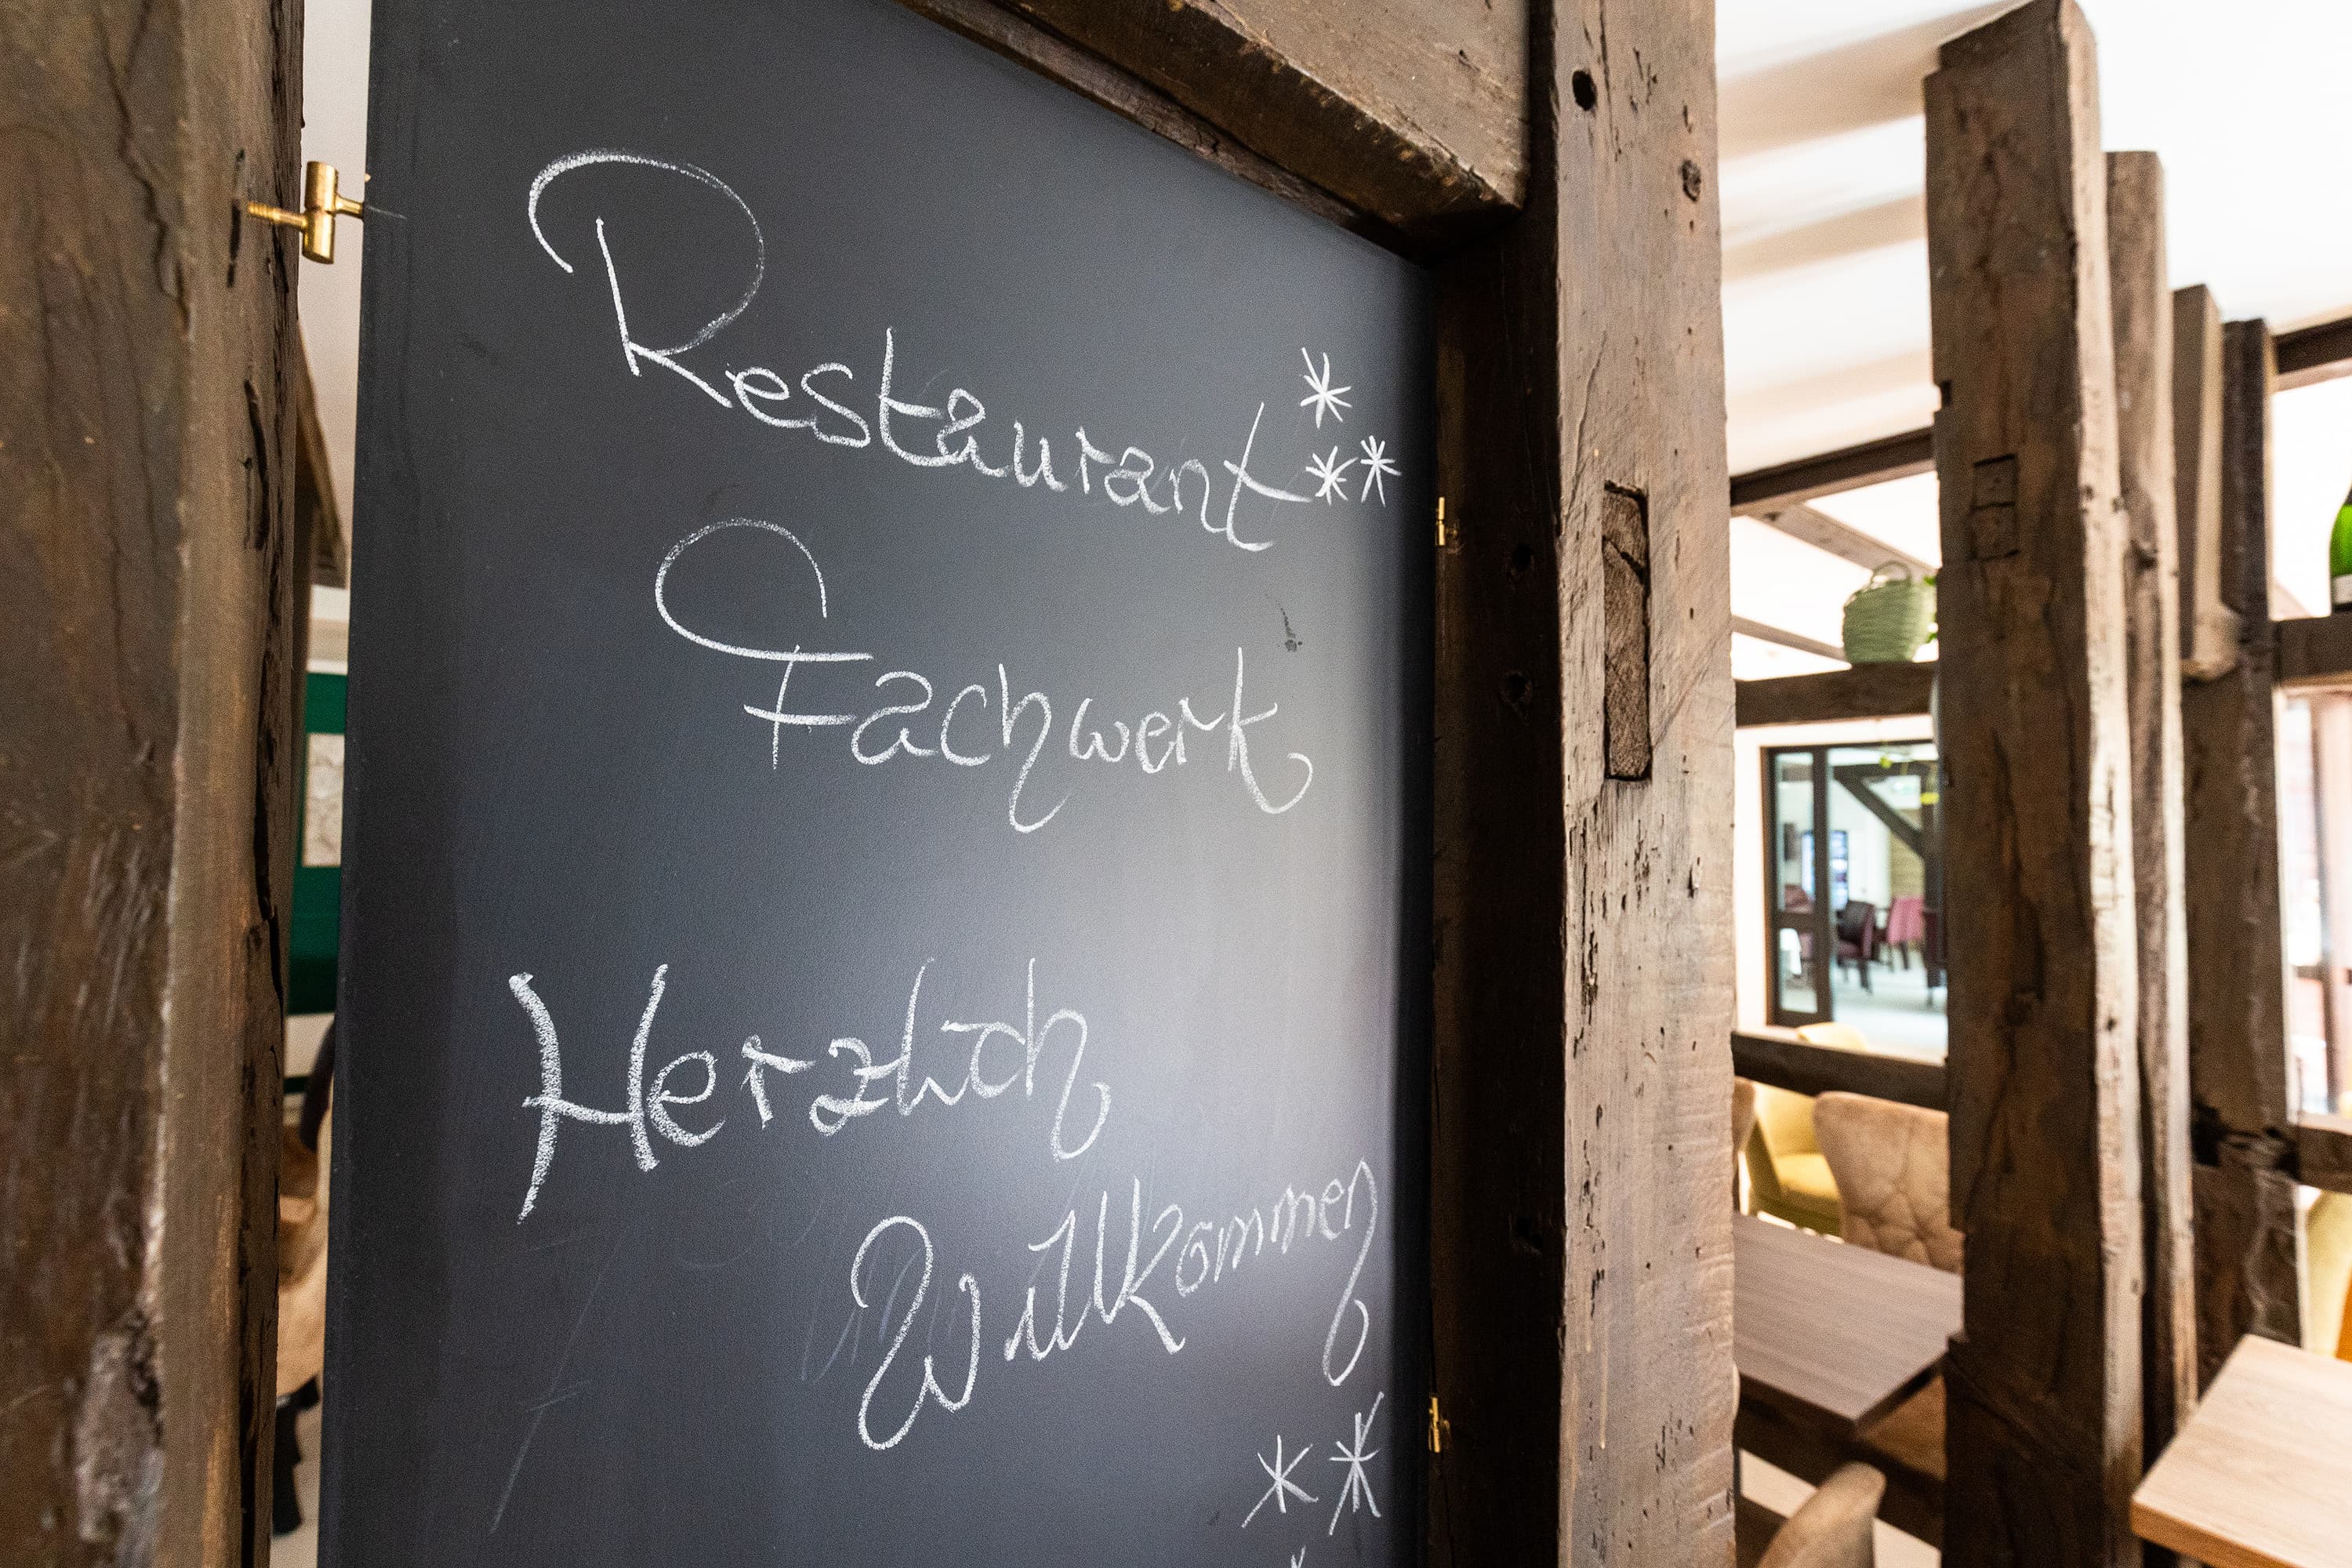 Restaurant
Fachwerk
Herzlich
Willkommen